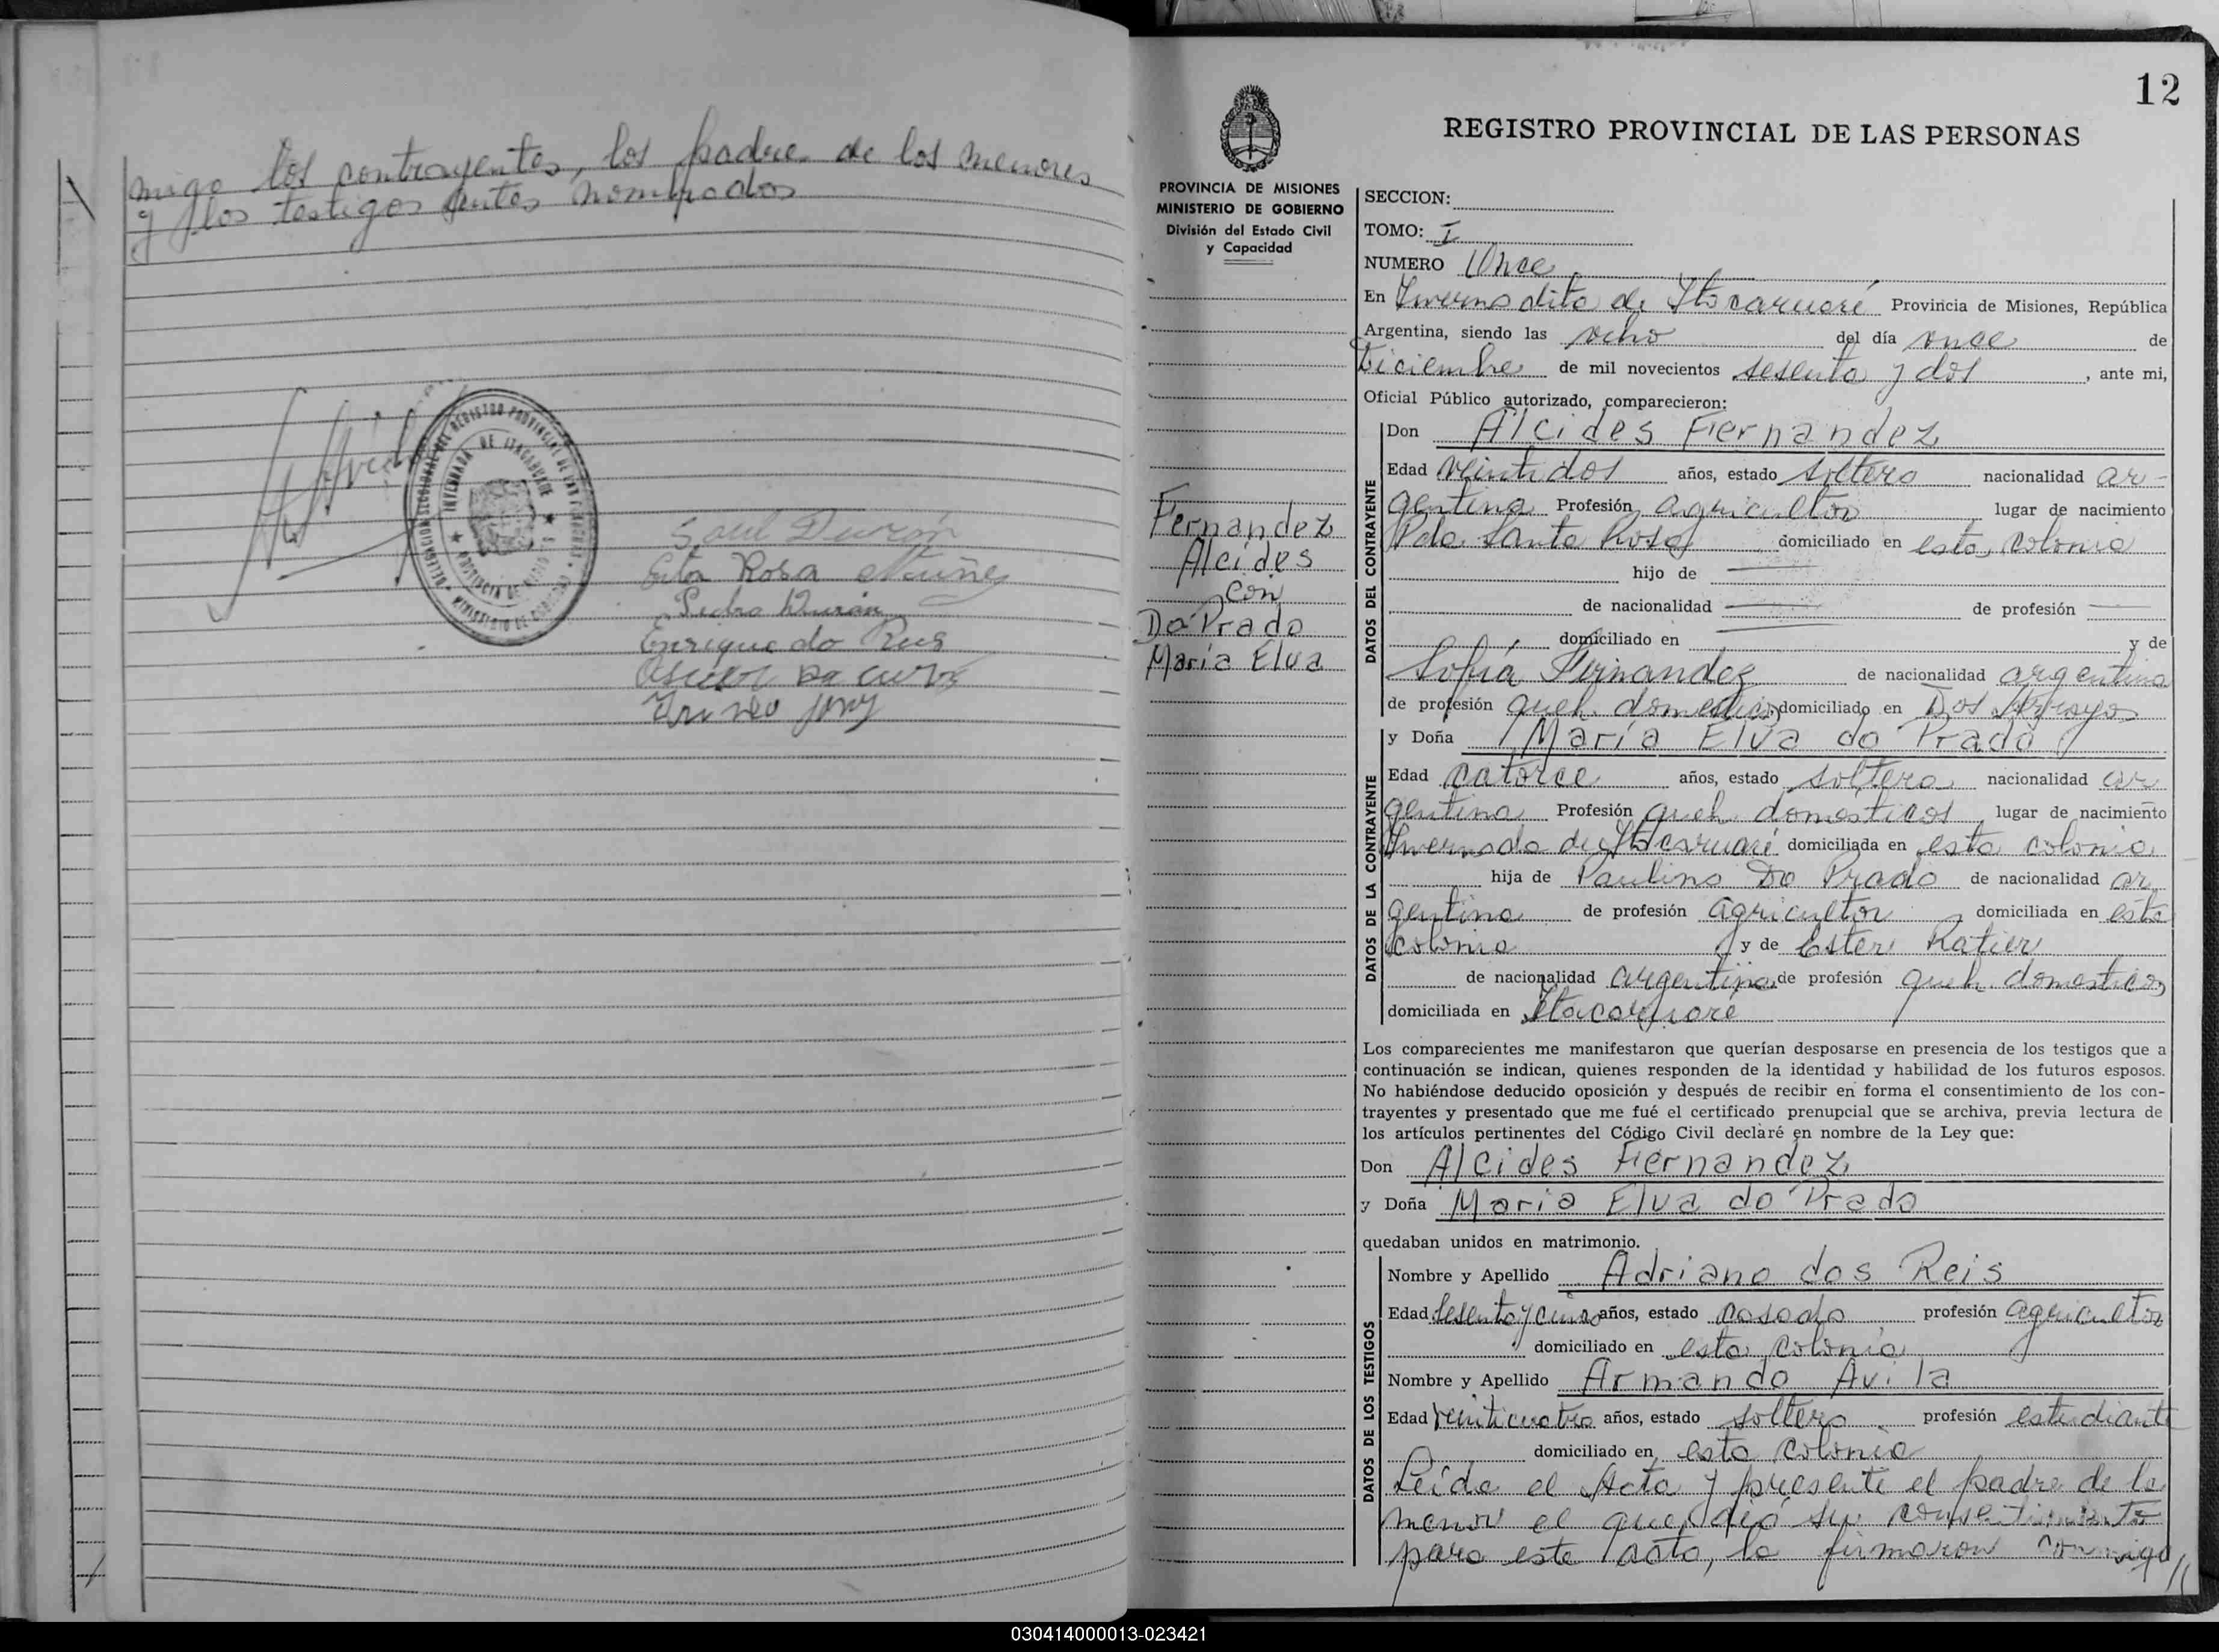 migo los contrayentes, los padre de los menores
y los testigos antes nombrados
DELEGACION SECCIONAL DEL REGISTRO PROVINCIAL DE LAS PERSONAS
MINISTERIO DE GOBIERNO
INVERNADA DE ITACARUARE
PROVINCIA DE MISIONES
Saul Durón
Rosa Nuñez
Pedro Durán
Enrique do Reis
12
REGISTRO PROVINCIAL DE LAS PERSONAS
PROVINCIA DE MISIONES
MINISTERIO DE GOBIERNO
División del Estado Civil
y Capacidad
Fernandez
Alcides
con
Do Prado
María Elva
SECCION:
TOMO: I
NUMERO Once
En Invernadita de Itacaruaré Provincia de Misiones, República
Argentina, siendo las ocho del día once de
Diciembre de mil novecientos sesenta y dos, ante mi,
Oficial Público autorizado, comparecieron:
DATOS DEL CONTRAYENTE
Don Alcides Fernandez
Edad veintidos años, estado soltero nacionalidad ar-
gentina Profesión agricultor lugar de nacimiento
Pdo Santa Rosa domiciliado en esta colonia
hijo de
de nacionalidad de profesión
domiciliado en y de
Sofía Fernandez de nacionalidad argentina
de profesión queh. domesticos domiciliado en Dos Arroyos
DATOS DE LA CONTRAYENTE
y Doña María Elva do Prado
Edad catorce años, estado soltera nacionalidad ar
gentina Profesión queh domésticos lugar de nacimiento
Invernada de Itacaruaré domiciliada en esta colonia
hija de Paulino Do Prado de nacionalidad ar
gentina de profesión agricultor domiciliada en esta
colonia y de Ester Ratier
de nacionalidad argentina de profesión queh. domesticos
domiciliada en Itacaruaré
Los comparecientes me manifestaron que querían desposarse en presencia de los testigos que a
continuación se indican, quienes responden de la identidad y habilidad de los futuros esposos.
No habiéndose deducido oposición y después de recibir en forma el consentimiento de los con-
trayentes y presentado que me fué el certificado prenupcial que se archiva, previa lectura de
los artículos pertinentes del Código Civil declaré en nombre de la Ley que:
Don Alcides Fernandez
y Doña Maria Elva do Prado
quedaban unidos en matrimonio.
DATOS DE LOS TESTIGOS
Nombre y Apellido Adriano dos Reis
Edad sesenta y cinco años, estado casado profesión agricultor
domiciliado en esta colonia
Nombre y Apellido Armando Avila
Edad veinticuatro años, estado soltero profesión estudiante
domiciliado en esta colonia
Leída el Acta y presente el padre de la
menor el que dió su consentimiento
para este acto, la firmaron conmigo //
030414000013-023421